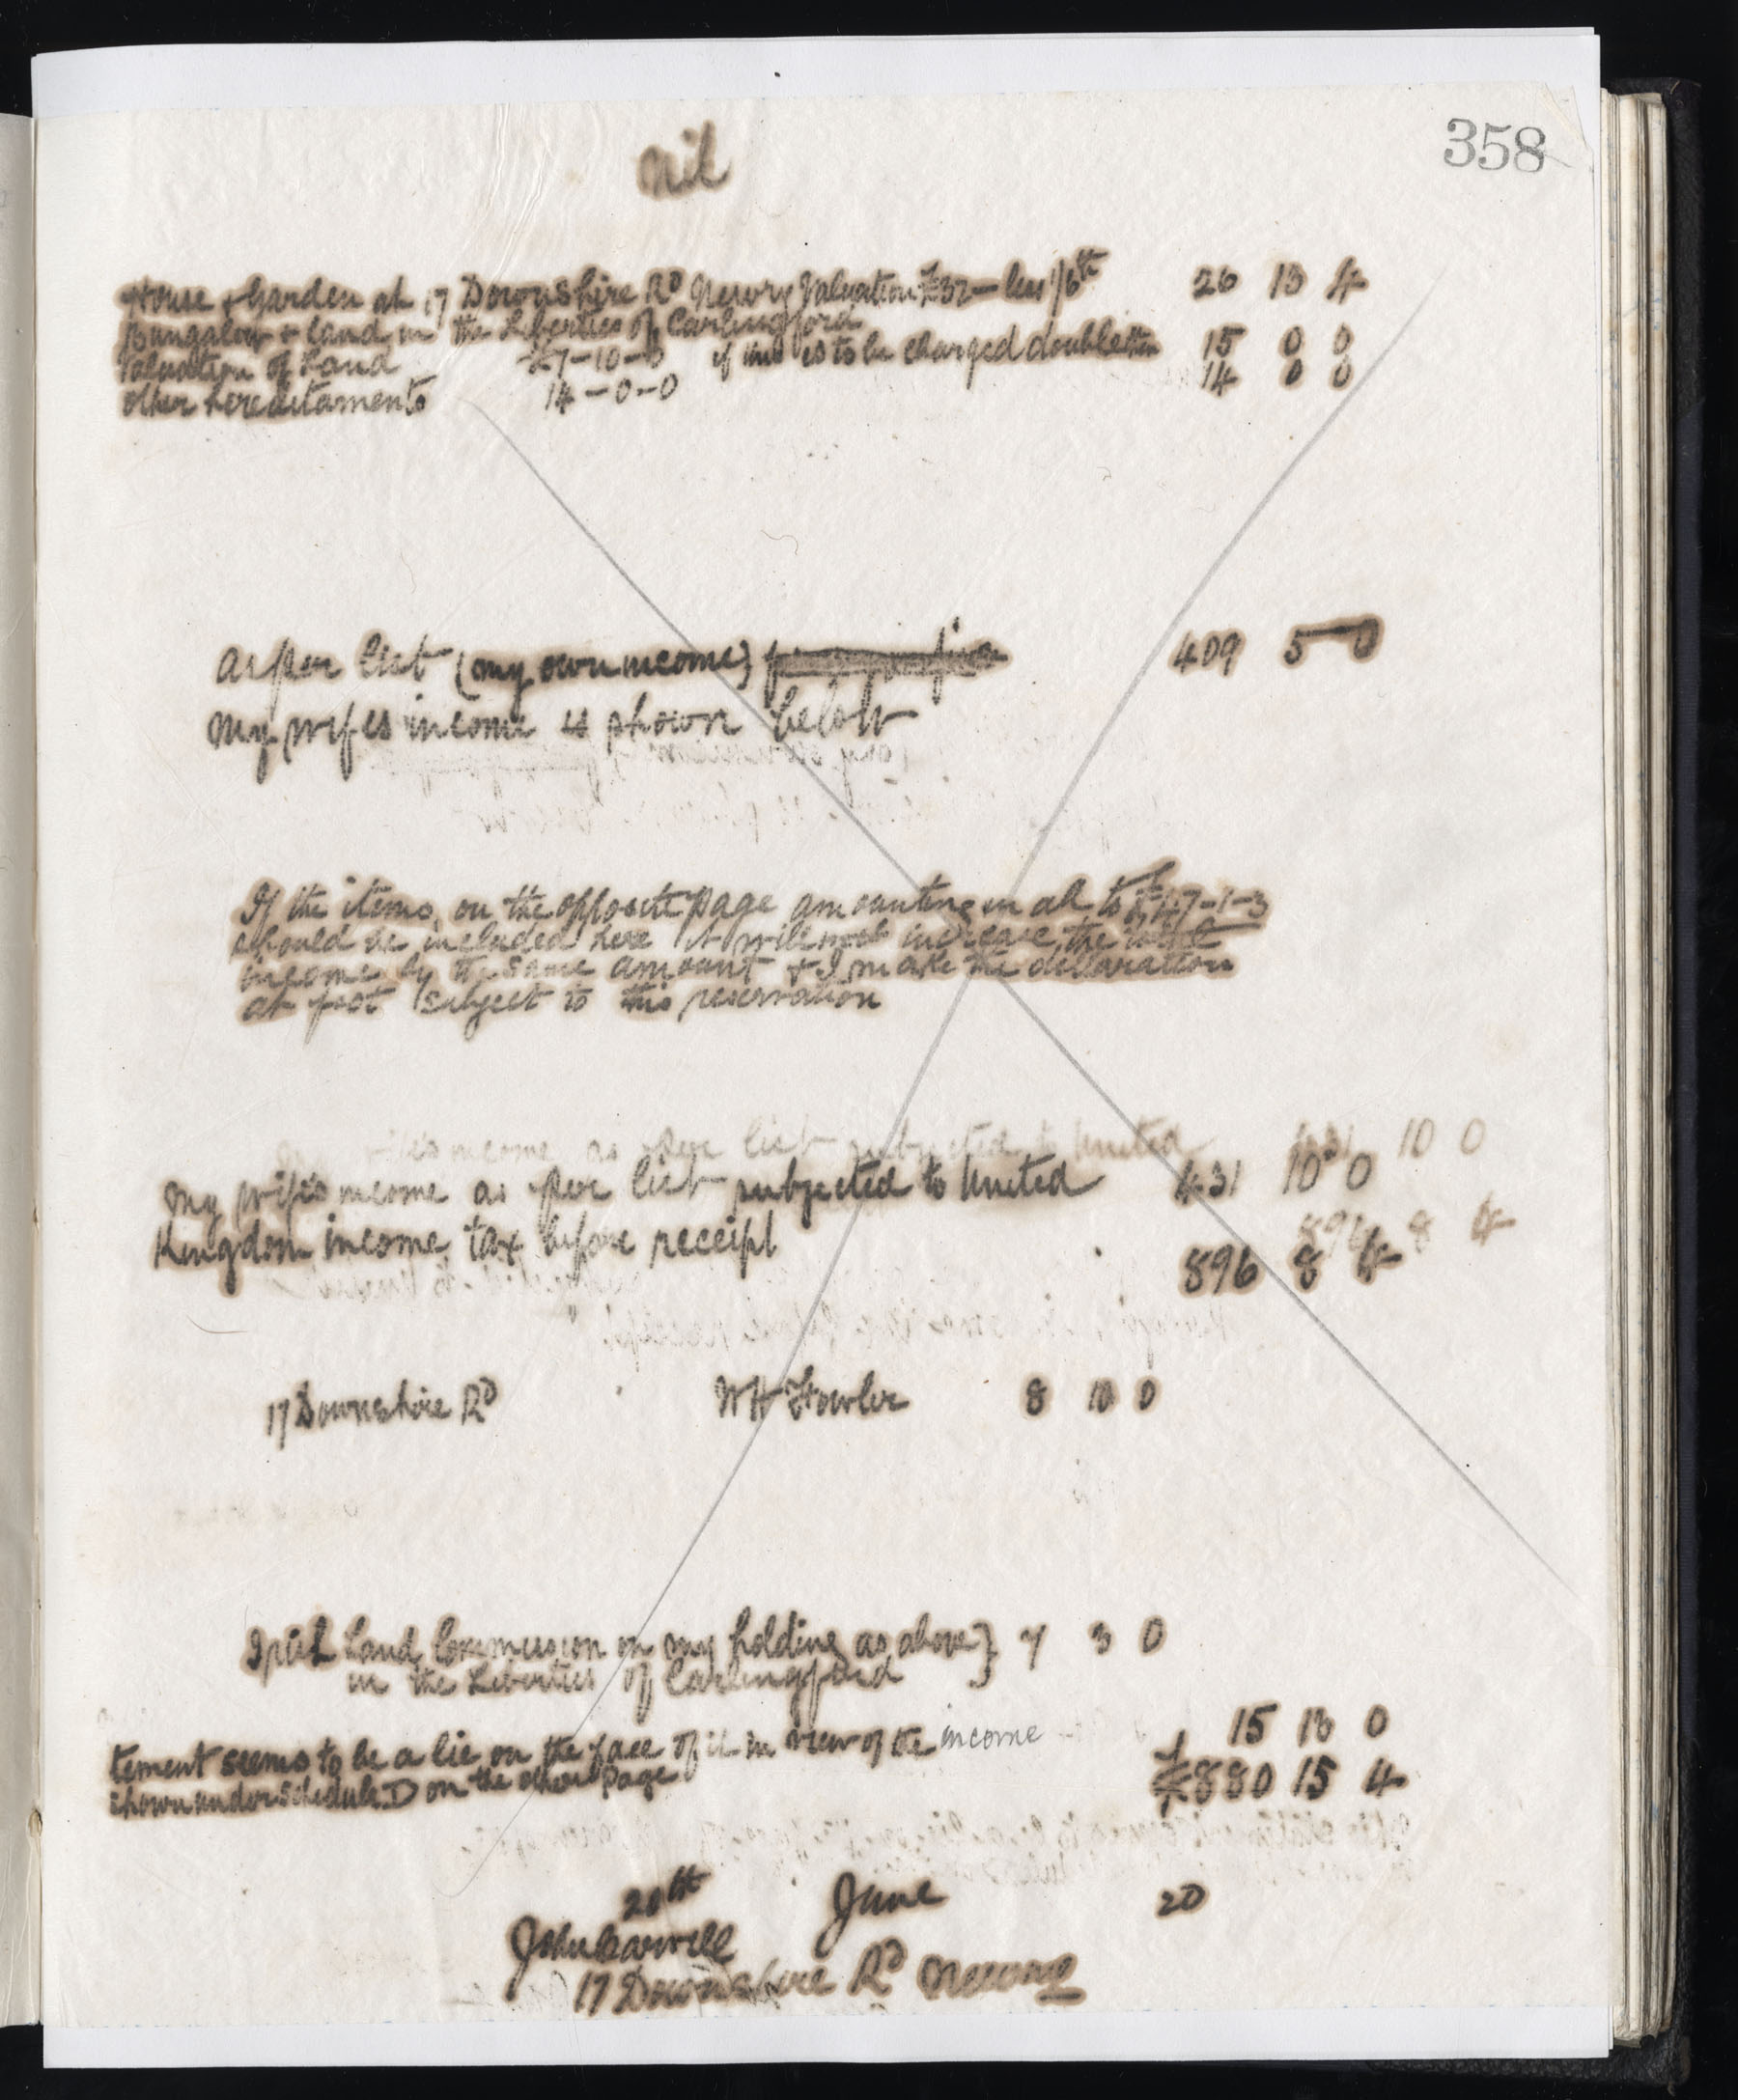 358
Nil
House & Garden at 17 Downshire Rd Newry Valuation £32 - less 1/6th 26 13 4
Bungalow & land in the Liberties of Carlingford
Valuation of Land £7-10-0 if this is to be charged double then 15 0 0
other hereditaments 14-0-0 14 0 0
As per list (my own income) 409 5 0
My wifes income is shown below
If the items on the opposite page amounting in all to £147-1-3
should be included here it will increase the total
income by the same amount & I make the declaration
at foot subject to this reservation
My wife's income as per list subjected to United 431 10 0
Kingdom income tax before receipt
896 8 4
17 Downshire Rd WH Fowler 8 10 0
Irish Land Commission on my holding as above } 7 3 0
in the Liberties of Carlingford
15 13 0
tement seems to be a lie on the face of it in view of the income
shown under Schedule D on the other page
£880 15 4
20th June 20
John Carvill
17 Downshire Rd Newry